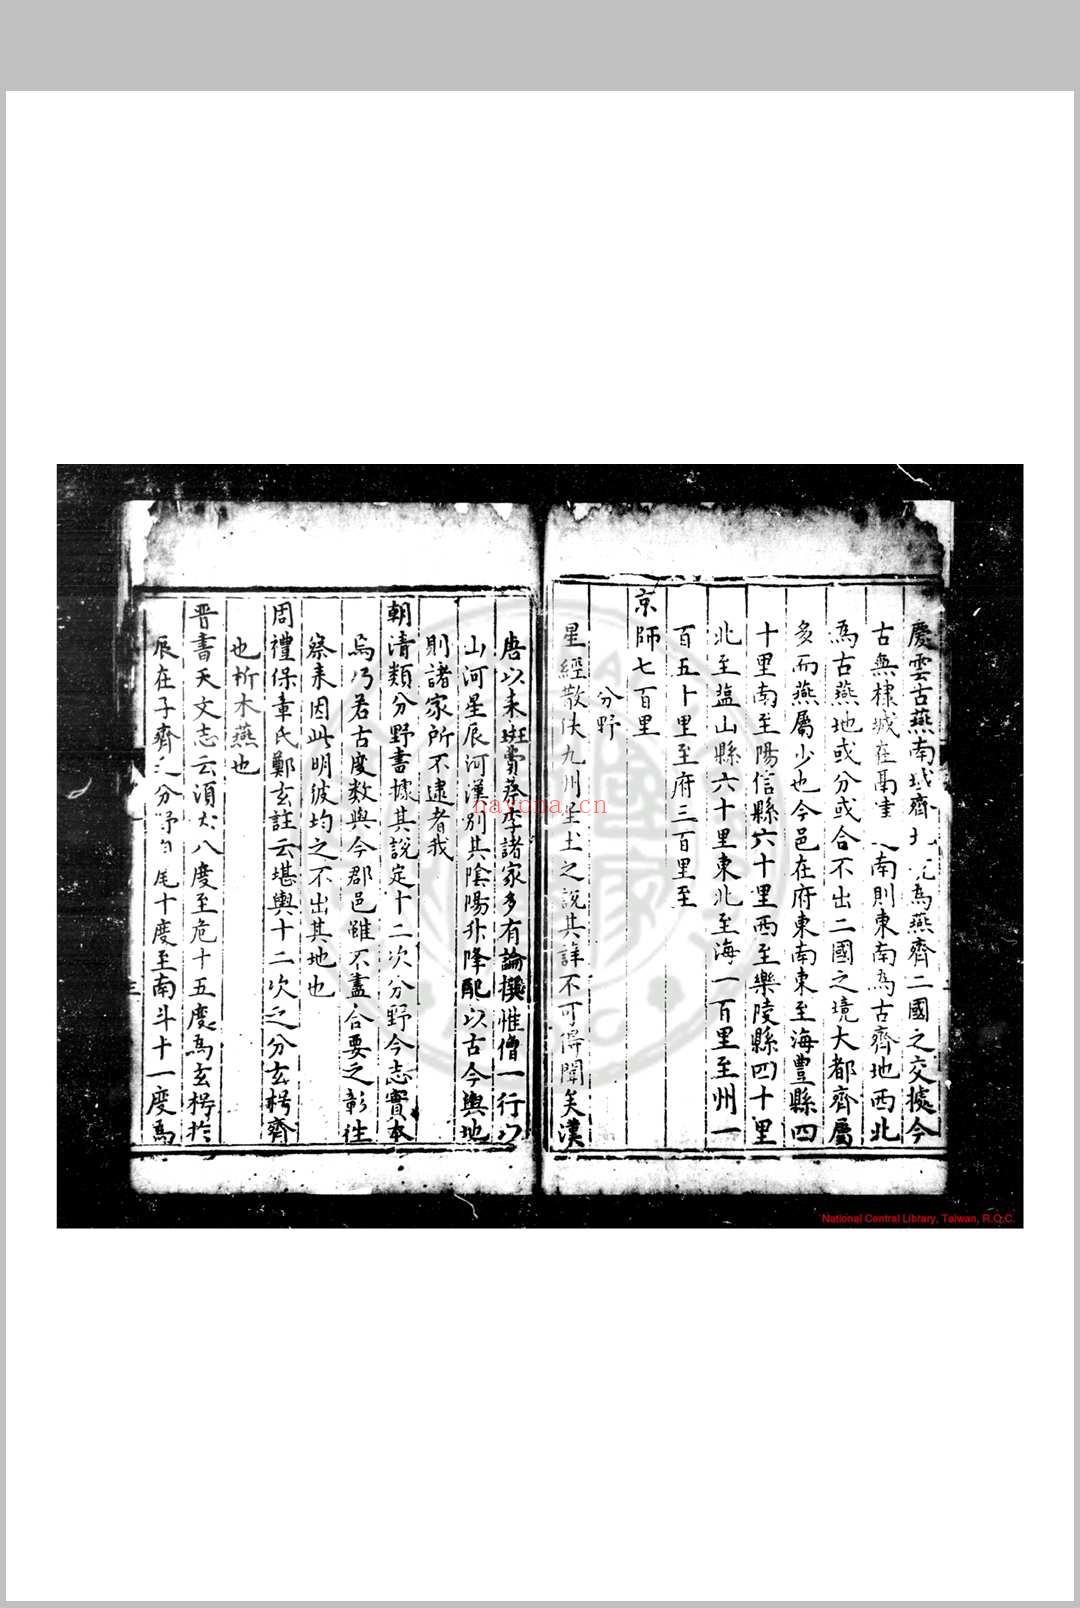 慶雲古燕南域齊北為燕齊二國之交據今
古無棣城在南則東南為古齊地西北
為古燕地或分或合不出二國之境大都齊屬
多而燕屬少也今邑在府東南東至海豐縣四
十里南至陽信縣六十里西至樂陵縣四十里
北至塩山縣六十里東北至海一百里至州一
百五十里至府三百里至
京師七百里
分野
星經散佚九州星土之說其詳不可得聞矣漢
唐以来班費蔡李諸家多有論撰惟僧一行以
山河星辰河漢別其陰陽升降配以古今輿地
則諸家所不逮者我
朝清類分野書據其說定十二次分野今志實本
焉乃若古度数與今郡邑雖不盡合要之彰往
察来因此明彼均之不出其地也
周禮保章氏鄭玄註云堪輿十二次之分玄枵齊
也析木燕也
晋書天文志云湏女八度至危十五度為玄枵於
辰在子齊之分野自尾十度至南斗十一度為
三
nayona.cn
National Central Library, Taiwan, R.O.C.